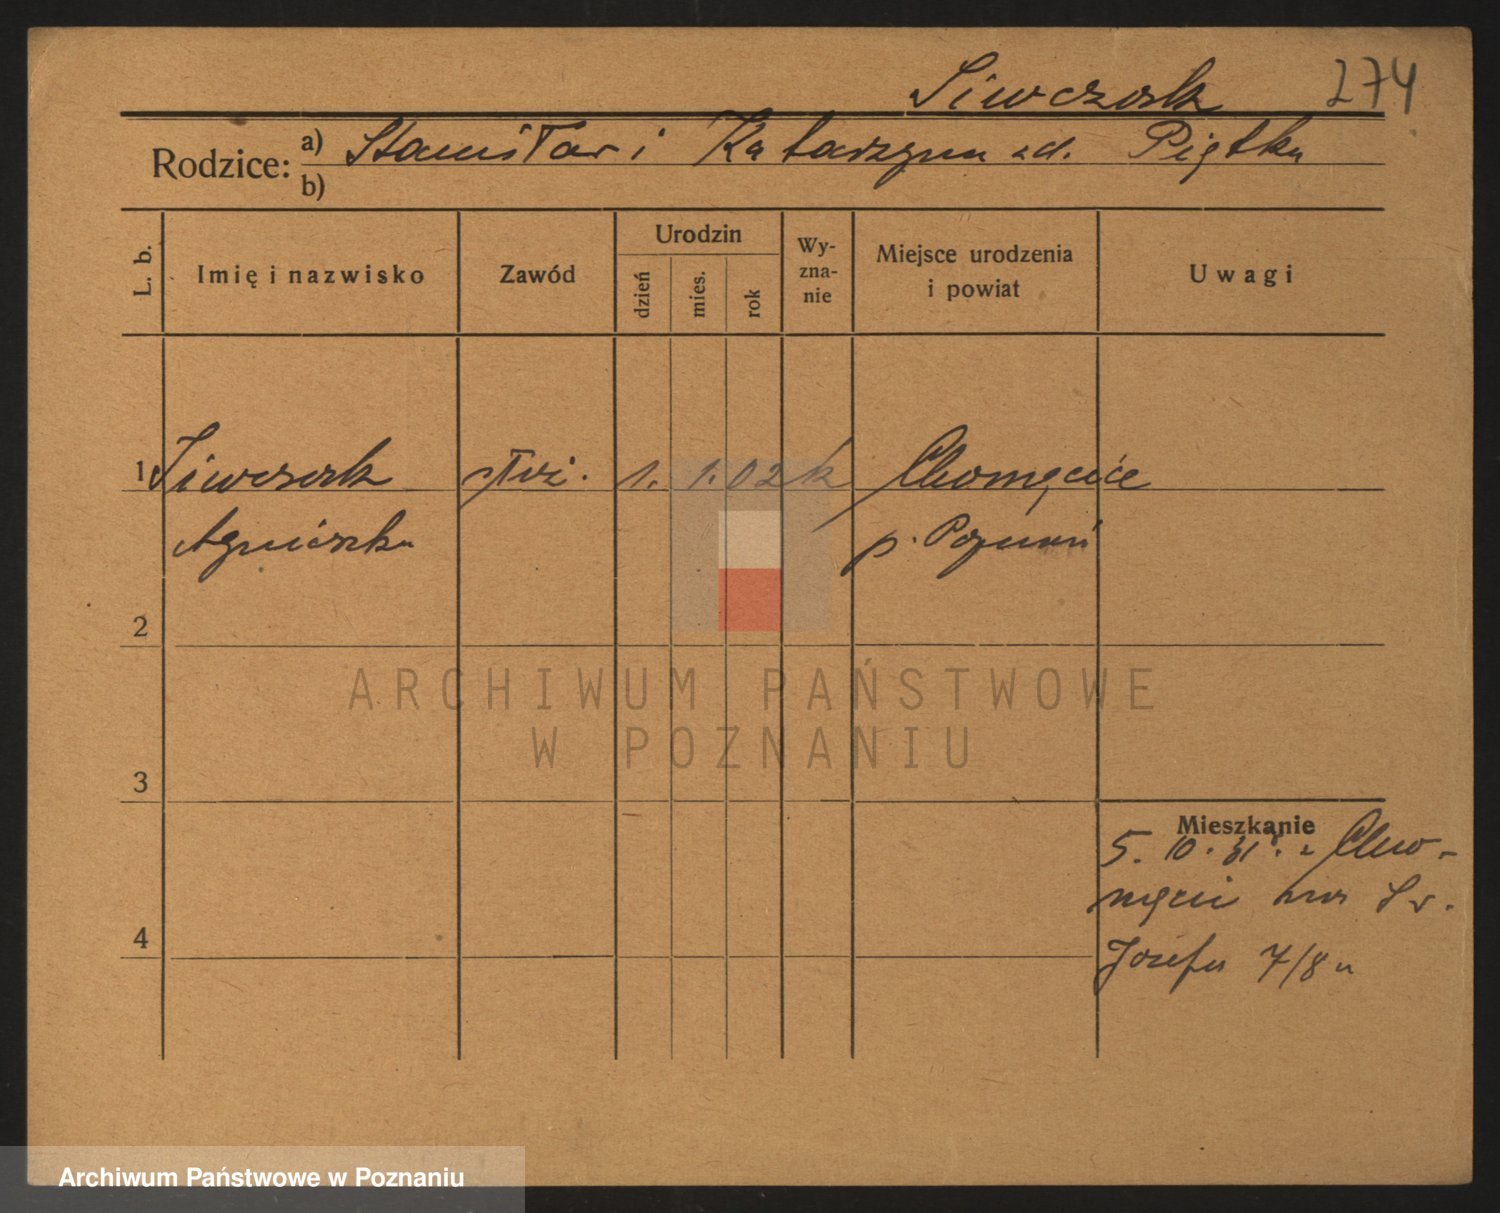 Siwczak 274
Rodzice: a) Stanisław i Katarzyna zd. Piętka
b)
L. b.
Imię i nazwisko
Zawód
Urodzin
dzień
mies.
rok
Wy-
zna-
nie
Miejsce urodzenia
i powiat
Uwagi
1 Siwczak służ. 1. 1. 02 k Chomęcice
Agnieszka p. Poznań
2
ARCHIWUM PAŃSTWOWE
W POZNANIU
3
Mieszkanie
5. 10. 31. z Cho-
męcic Św.
Józefa 7/8
4
Archiwum Państwowe w Poznaniu